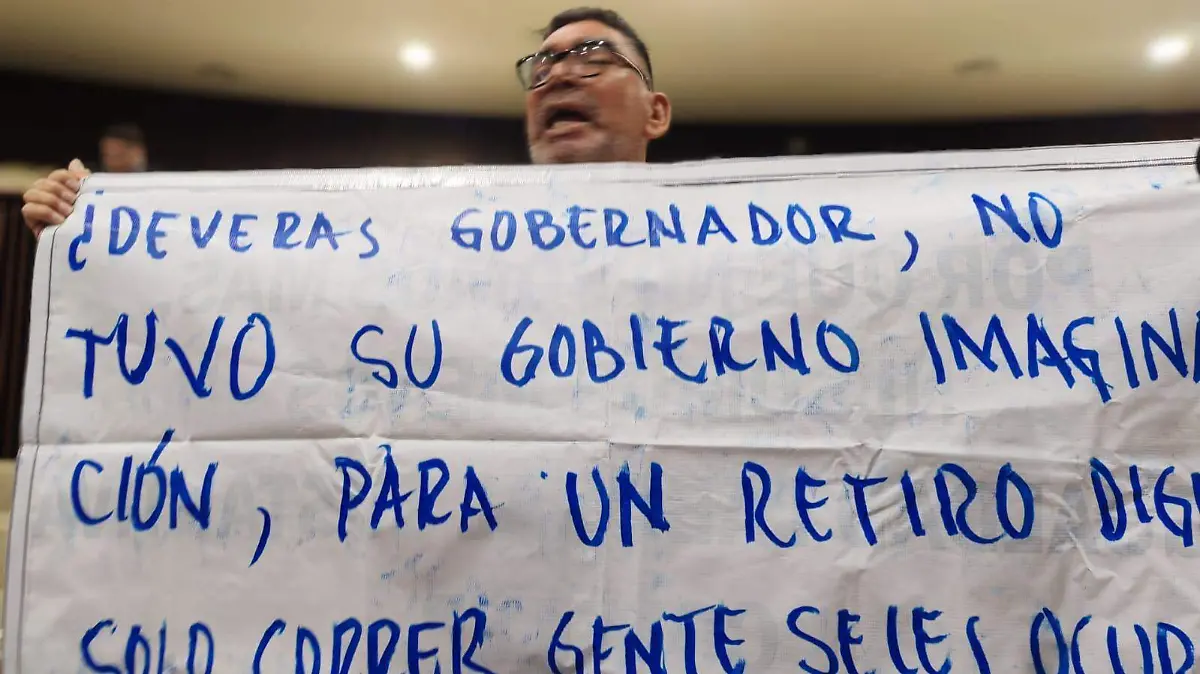 ¿DEVERAS GOBERNADOR, NO
TUVO SU GOBIERNO IMAGIN
CIÓN, PARA UN RETIRO DIG
SOLO CORRER GENTE SE LES OCUR